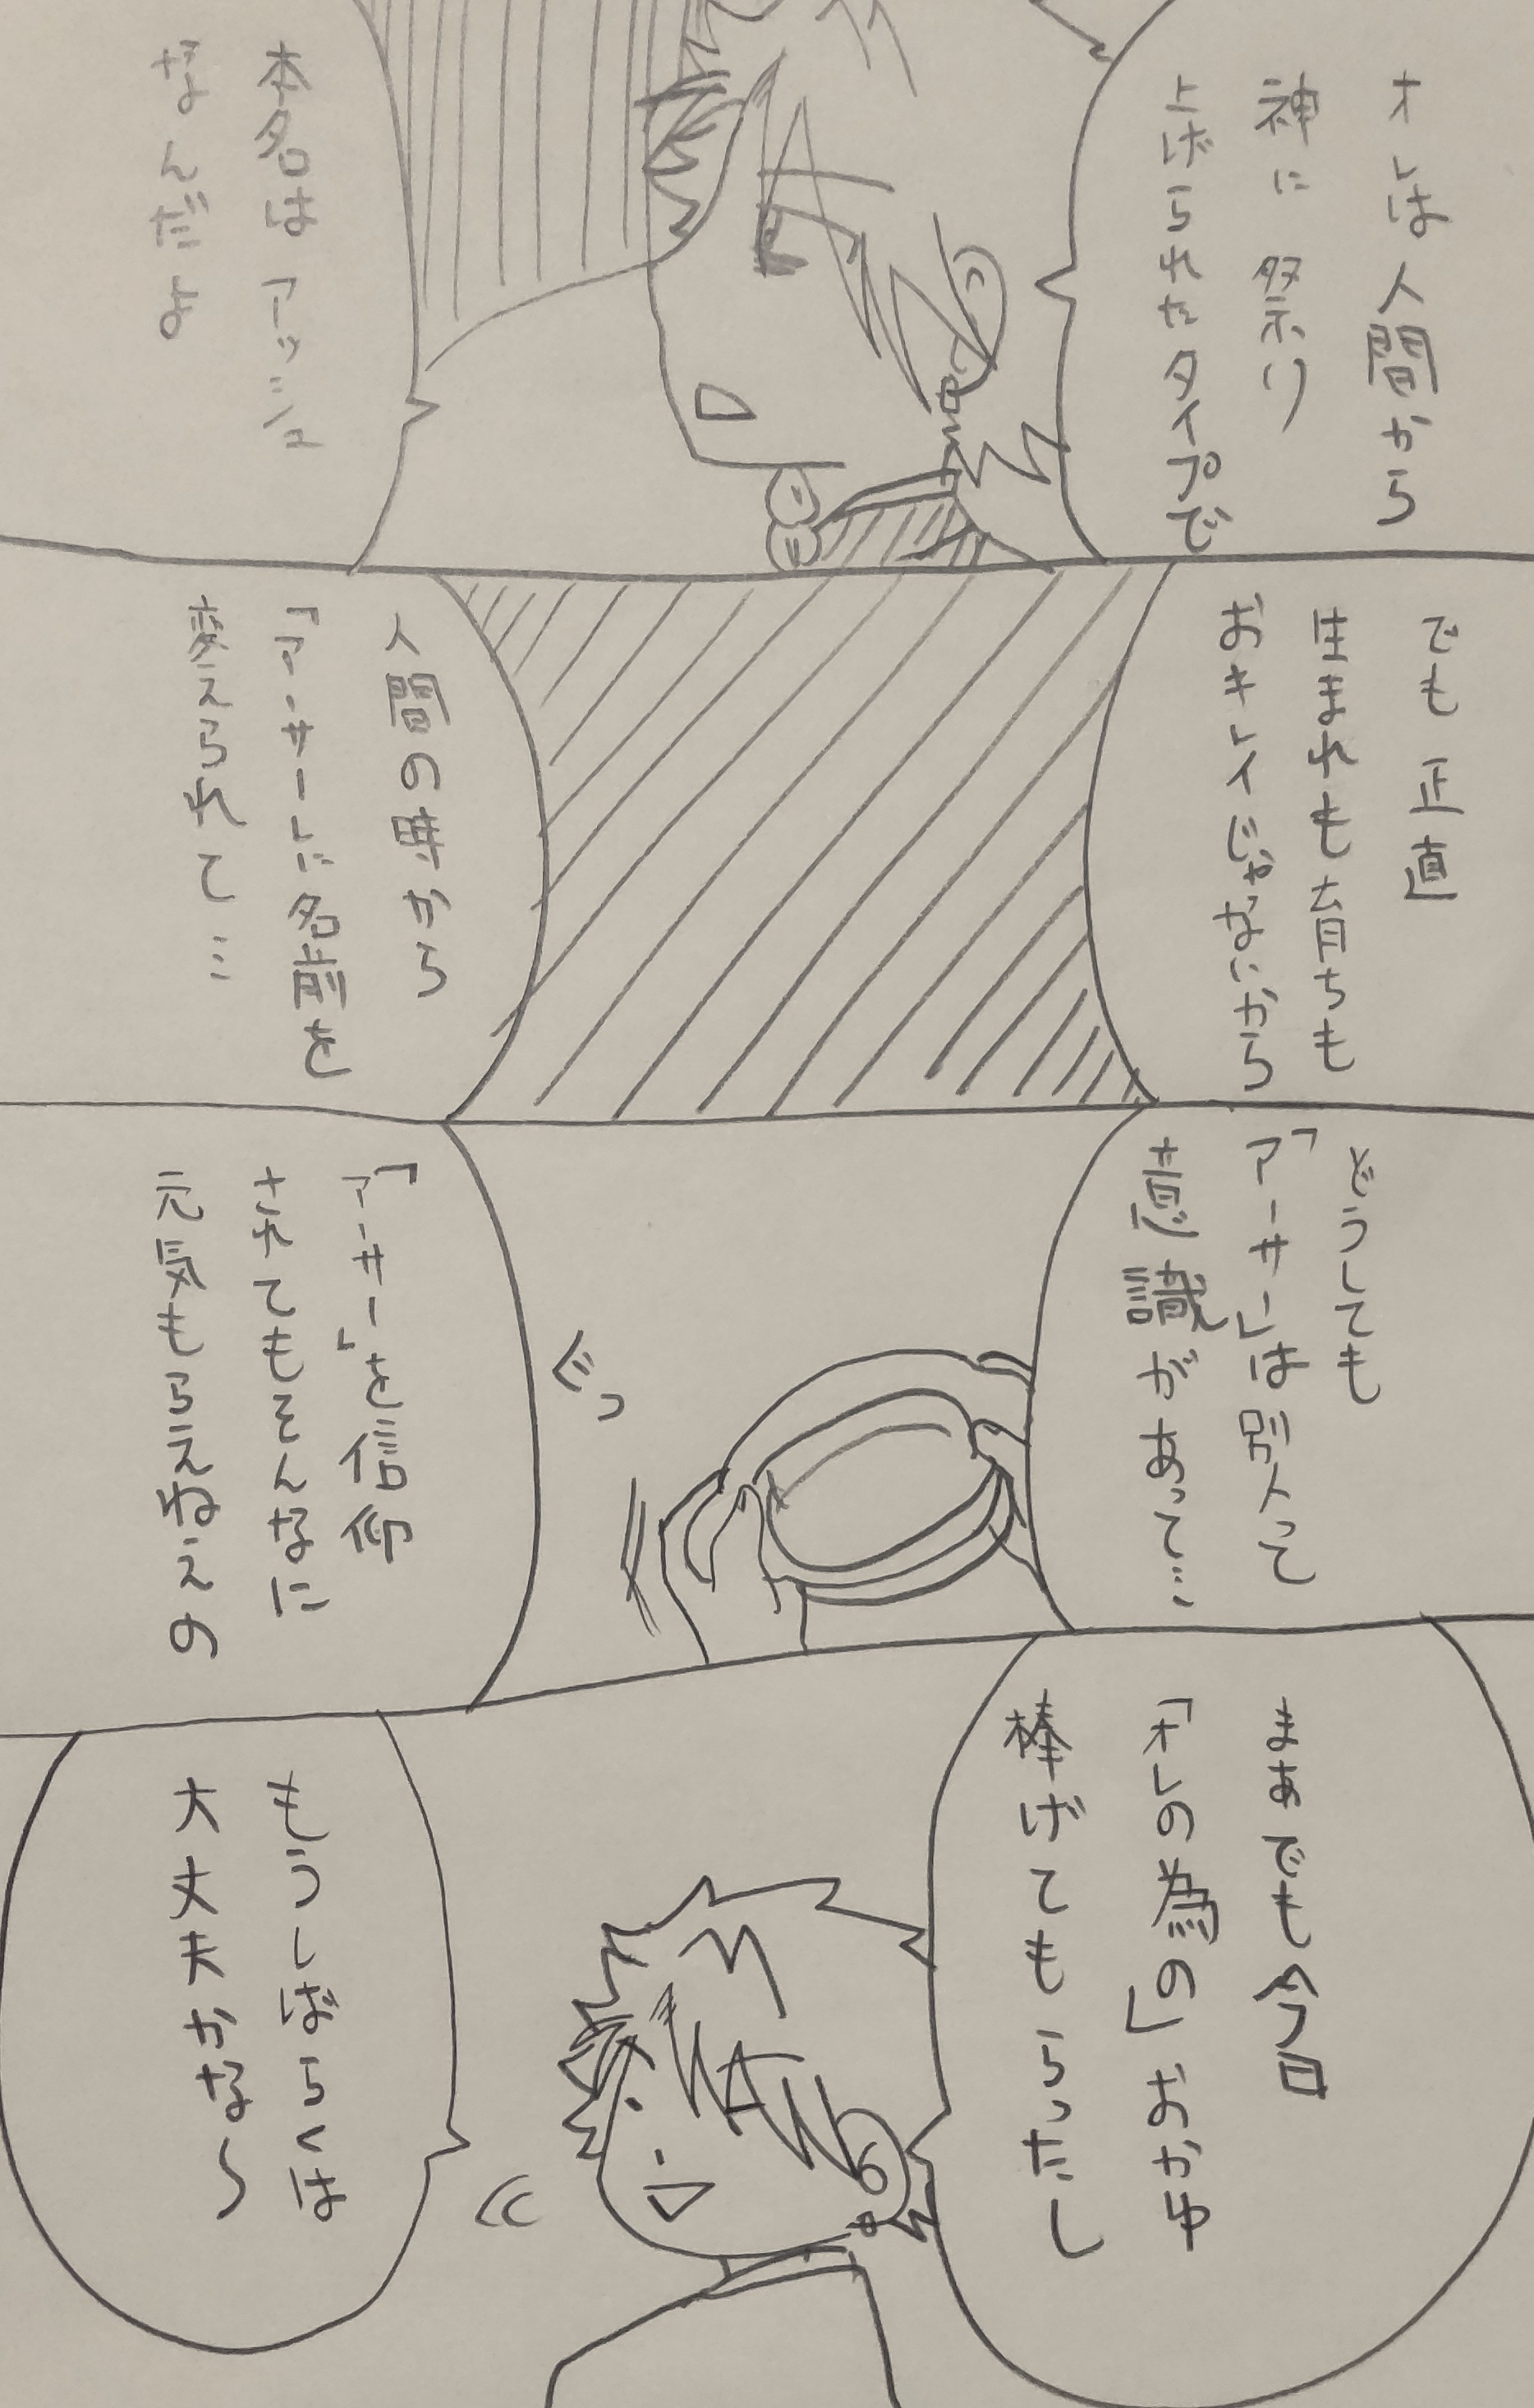 オレは人間から
神に祭り
上げられたタイプで
本名はアッシュ
なんだよ
でも正直
生まれも育ちも
おキレイじゃないから
人間の時から
「アーサー」に名前を
変えられて…
どうしても
「アーサー」は別人って
意識があって…
ぐっ
「アーサー」を信仰
されてもそんなに
元気もらえねえの
まあでも今日
「オレの為の」おかゆ
捧げてもらったし
もうしばらくは
大丈夫かな〜